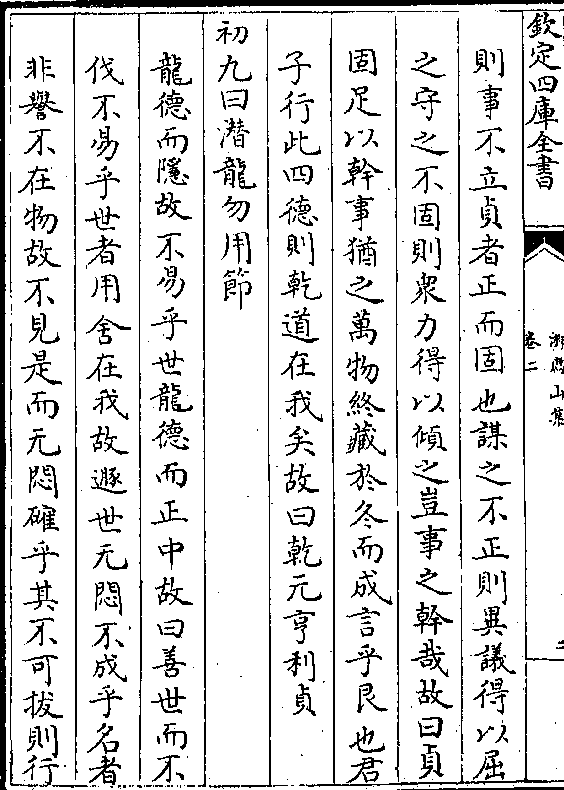 欽定四庫全書
卷二
則事不立貞者正而固也謀之不正則異議得以屈
之守之不固則衆力得以傾之豈事之幹哉故曰貞
固足以幹事猶之萬物終藏於冬而成言乎艮也君
子行此四德則乾道在我矣故曰乾元亨利貞
初九曰潛龍勿用節
龍德而隱故不易乎世龍德而正中故曰善世而不
伐不易乎世者用舍在我故遯世无悶不成乎名者
非譽不在物故不見是而无悶確乎其不可拔則行